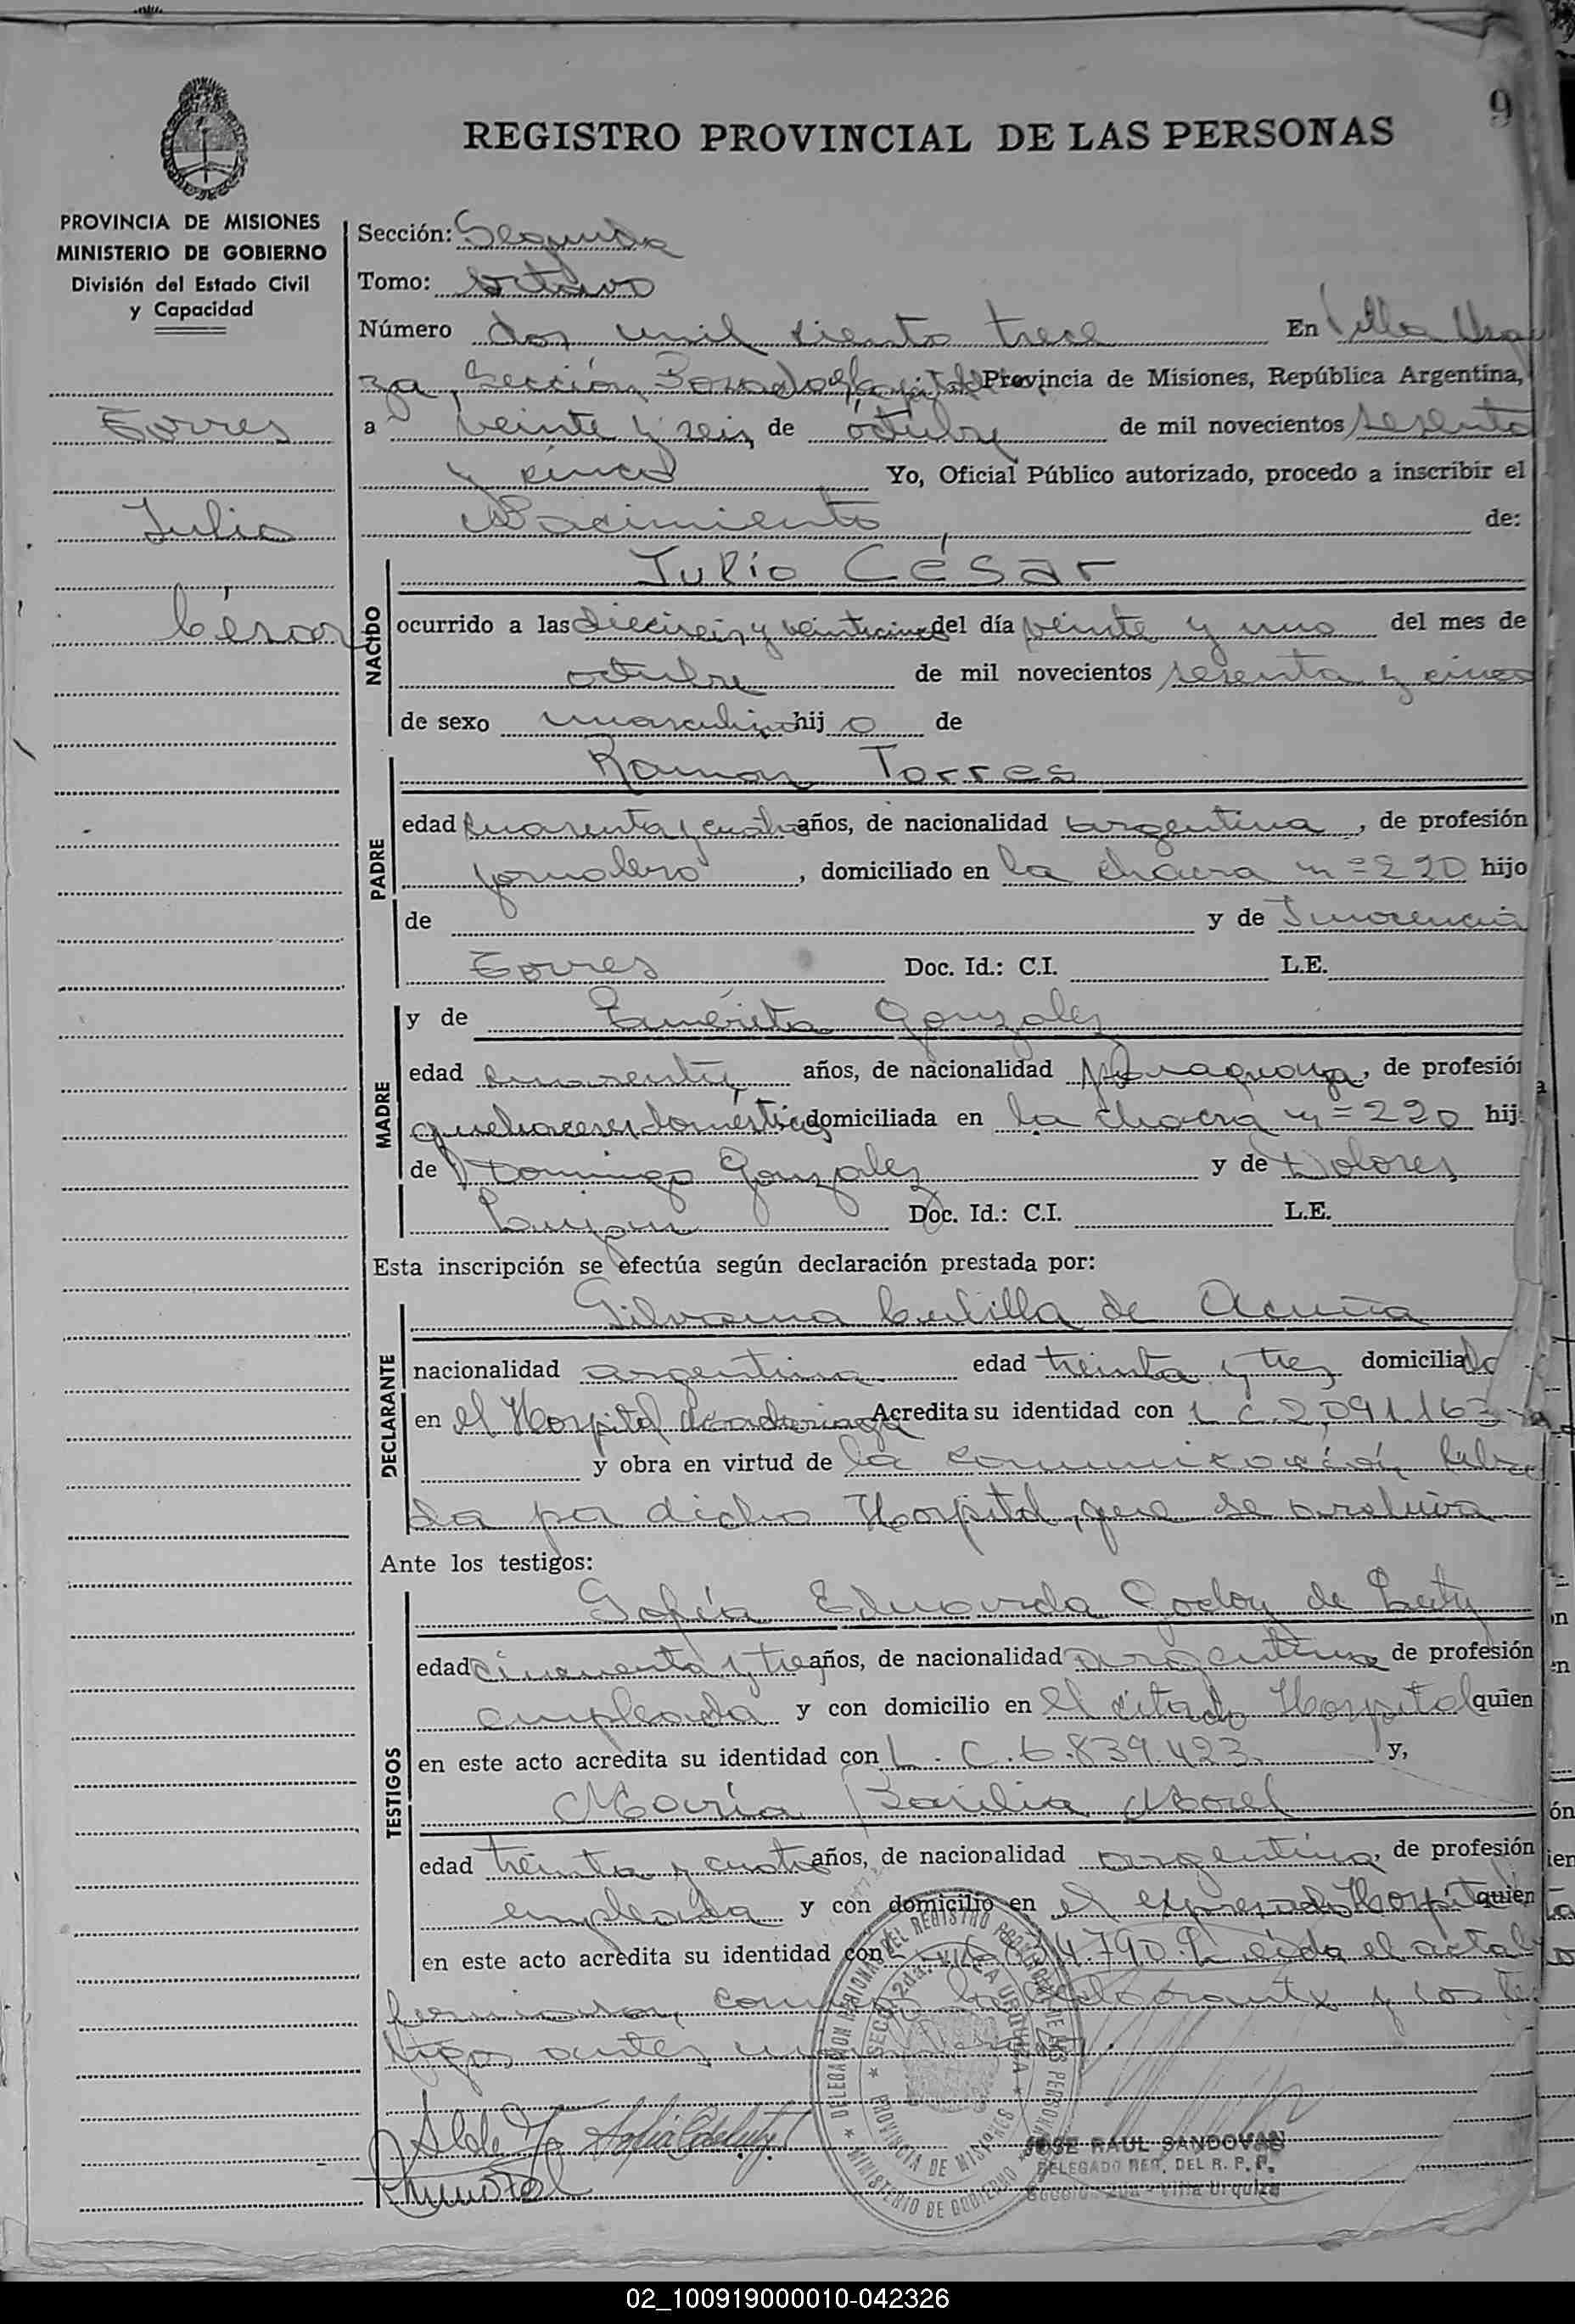 9
REGISTRO PROVINCIAL DE LAS PERSONAS
PROVINCIA DE MISIONES
MINISTERIO DE GOBIERNO
División del Estado Civil
y Capacidad
Torres
Julio
César
Sección: Segunda
Tomo: octavo
Número dos mil ciento trece En Villa Urqui
za, Sección Posadas, Capital Provincia de Misiones, República Argentina,
a veinte y seis de octubre de mil novecientos sesenta
y cinco Yo, Oficial Público autorizado, procedo a inscribir el
Nacimiento de:
Julio César
NACIDO
ocurrido a las dieciseis y veinticinco del día veinte y uno del mes de
octubre de mil novecientos sesenta y cinco
de sexo masculino hij o de
Ramon Torres
PADRE
edad cuarenta y cuatro años, de nacionalidad argentina, de profesión
jornalero, domiciliado en la chacra nº 220 hijo
de y de Inocencia
Torres Doc. Id.: C.I. L.E.
MADRE
y de Emérita Gonzalez
edad cuarenta años, de nacionalidad paraguaya, de profesión
quehaceres domésticos domiciliada en la chacra nº 220 hij
de Domingo Gonzalez y de Dolores
Doc. Id.: C.I. L.E.
Esta inscripción se efectúa según declaración prestada por:
DECLARANTE
Silvana de Acuña
nacionalidad argentina edad treinta y tres domiciliada
en el Hospital Madariaga Acredita su identidad con L C 2.091.163
y obra en virtud de la comunicación libra
da por dicho Hospital, que se archiva
Ante los testigos:
TESTIGOS
Sofía Eduarda Godoy de
edad cincuenta y tres años, de nacionalidad argentina de profesión
empleada y con domicilio en el citado Hospital quien
en este acto acredita su identidad con L. C. 6.839.423 y,
María Basilia Morel
edad treinta y cuatro años, de nacionalidad argentina, de profesión
empleada y con domicilio en el expresado Hospital quien
en este acto acredita su identidad con 4.790. Leída el acta
firman conmigo la declarante y los tes
tigos antes
DELEGACION REGIONAL DEL REGISTRO PROVINCIAL DE LAS PERSONAS
MINISTERIO DE GOBIERNO
SECC. 2da. VILLA URQUIZA
PROVINCIA DE MISIONES
JOSE RAUL SANDOVAL
DELEGADO REG. DEL R. P. P.
Sección 2da - Villa Urquiza
02_100919000010-042326